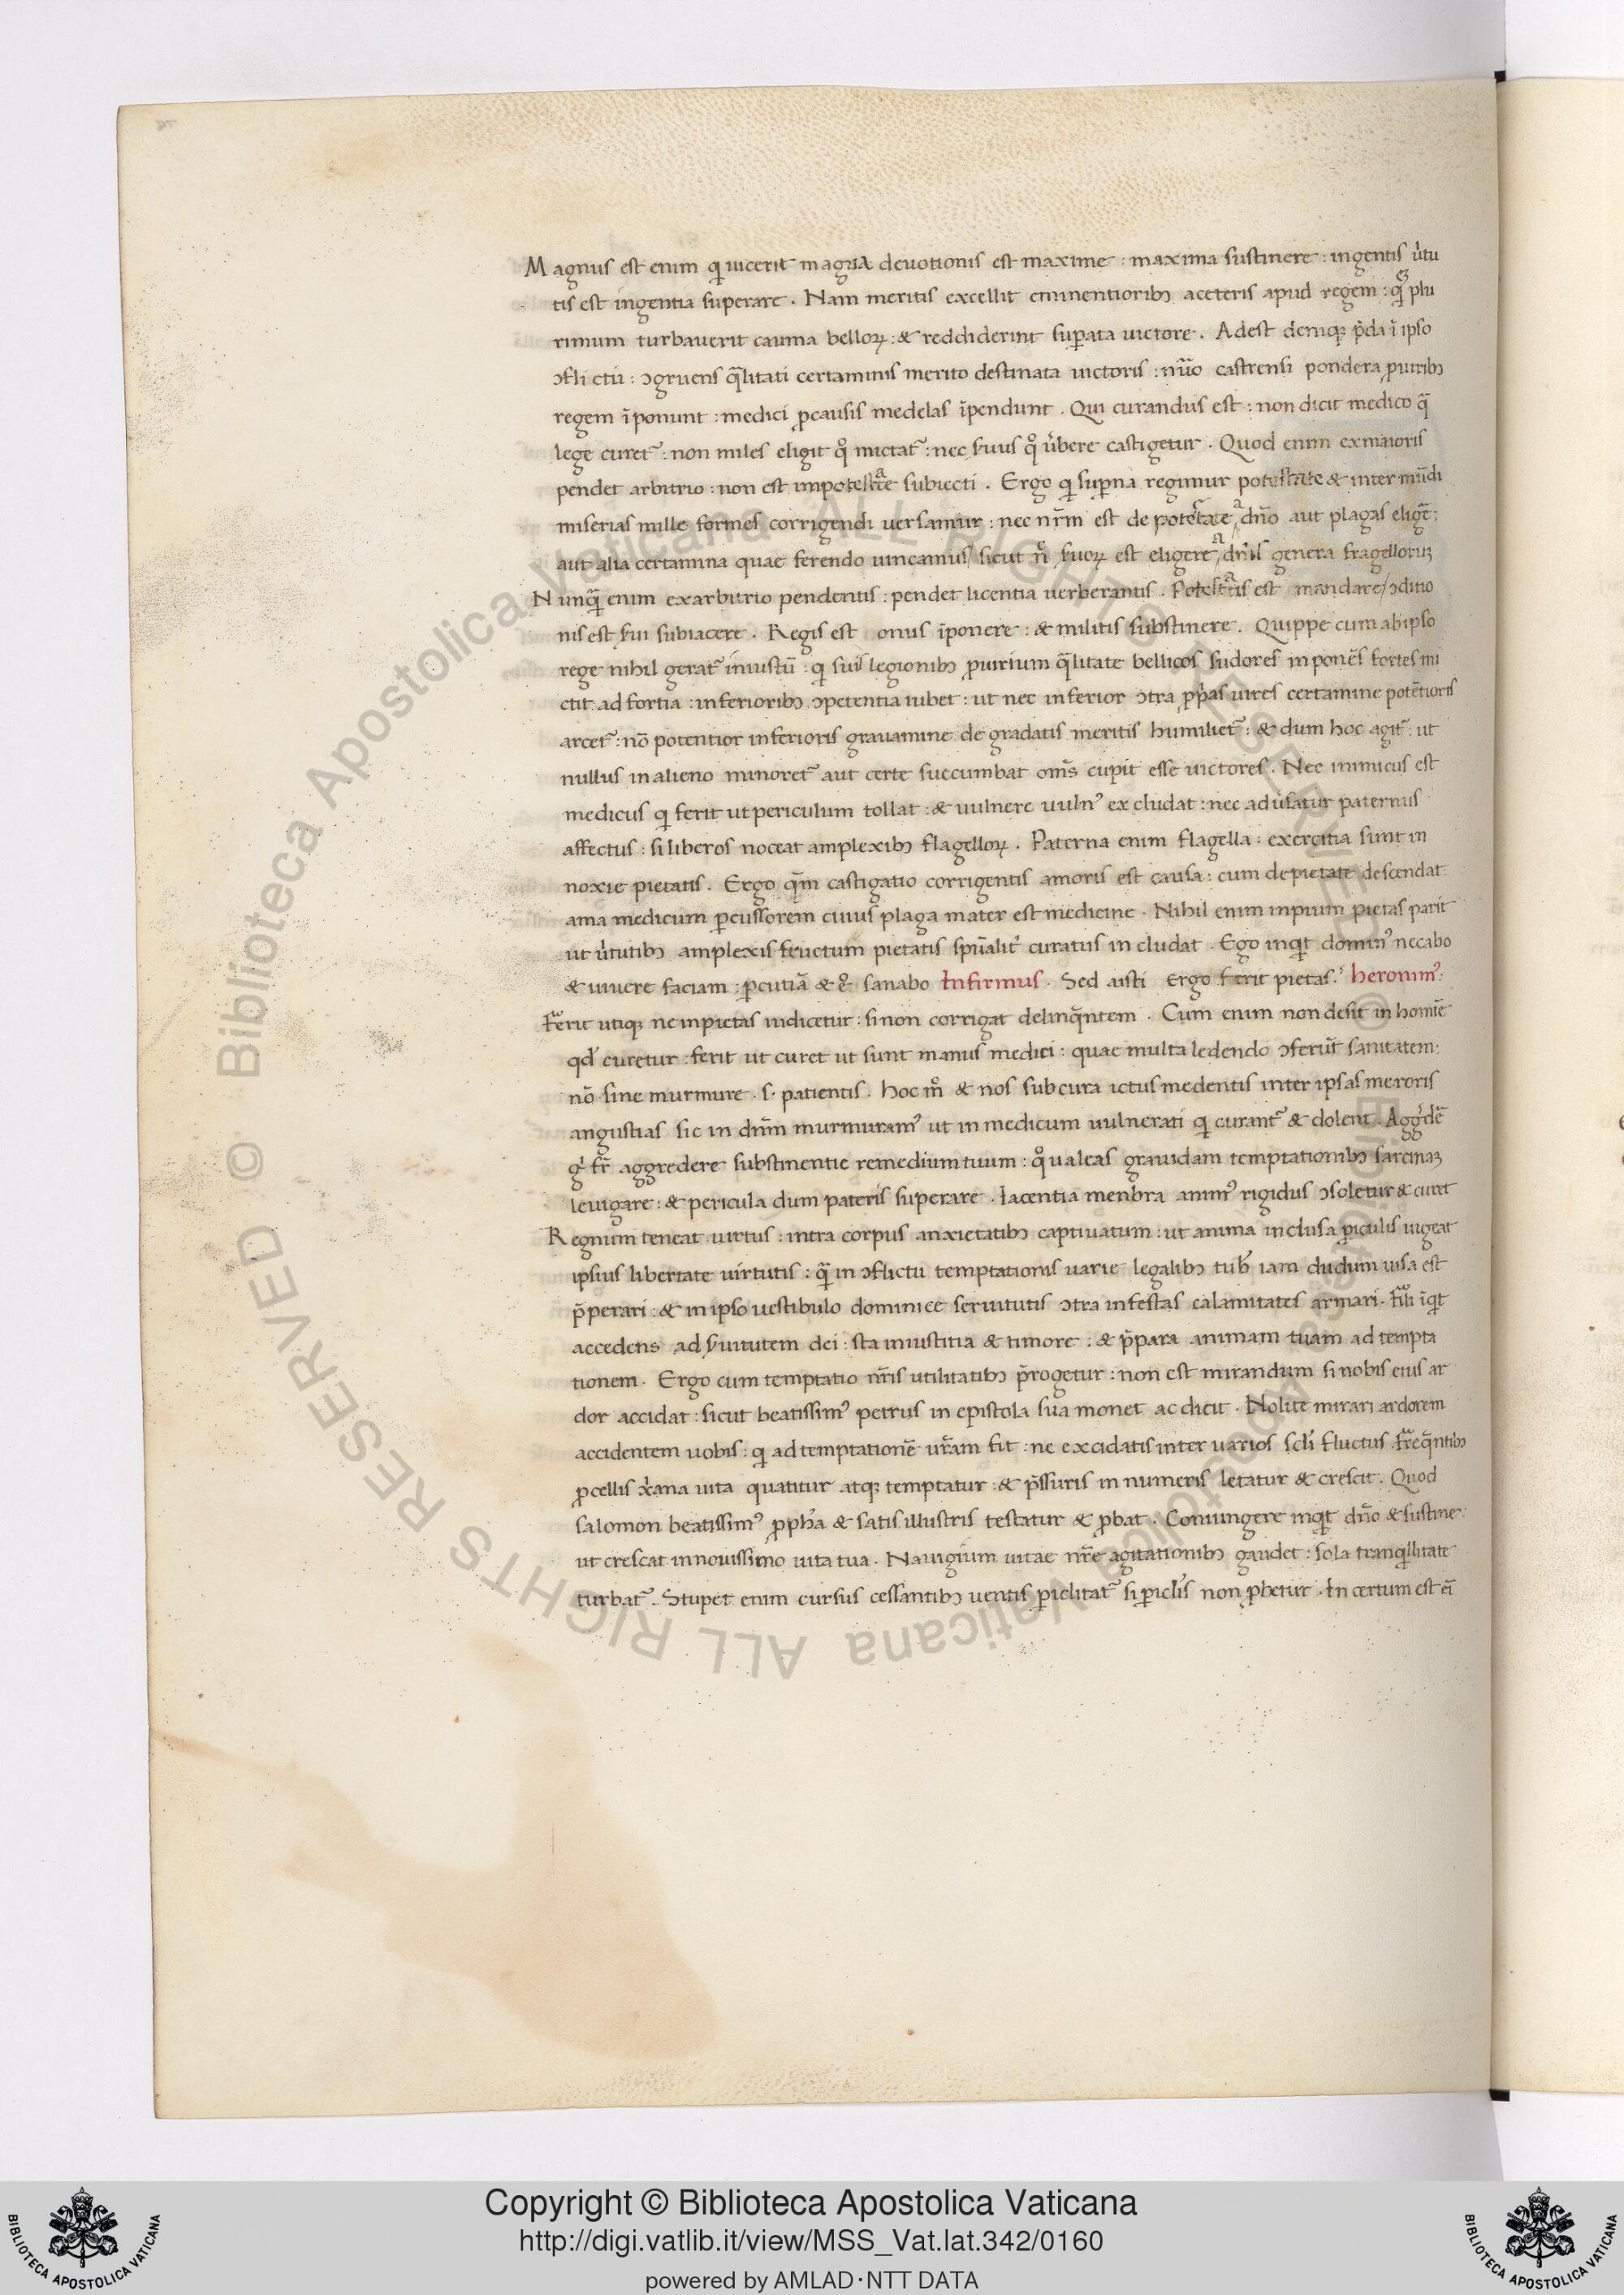 Magnus est enim q̇ uicerit magna deuotionis est maxime : maxima sustinere : ingentis u̓tu
tis est ingentia superare . Nam meritis excellit eminentioribꝫ aceteris apud regem : qͥ plu
rimum turbauerit cauma belloꝝ : & reddiderint suꝑata uictore . Adest demqꝫ p̄da ī ipso
ɔfli ctu : ɔgruens q̄litati certaminis merito destinata uictoris : nūo castrensi pondera ꝓuiribꝫ
regem īponunt : medici ꝓcausis medelas īpendunt . Qui curandus est : non dicit medico q̄
lege curet᷑ : non miles eligit qͦ mictat᷑ : nec ẜuus qͦ u̓bere castigetur . Quod enim exmaioris
pendet arbitrio : non est inpotestate subiecti . Ergo q̇ suꝑna regimur potestate & inter mūdi
miserias mille formes corrigendi uersamur : nec nr̄m est de potestate a dn̄o aut plagas elige᷑ ;
aut alia certamina quae ferendo uincamus / sicut n̄ ẜuoꝝ est eligere a dn̄is genera fragelloruꝫ
Nunq̄ enim exarbitrio pendentis : pendet licentia uerberantis . Potestatis est mandare / ɔditio
nis est ẜui subiacere . Regis est onus īponere : & militis substinere . Quippe cum abipso
rege nihil gerat᷑ iniustū : q̇ suis legionibꝫ ꝓuirium q̄litate bellicos sudores inponēs fortes mi
ctit ad fortia : inferioribꝫ ɔpetentia iubet : ut nec inferior ɔtra ꝓp̓as uires certamine potētioris
arcet᷑ : nō potentior inferioris grauamine de gradatis meritis humiliet᷑ : & dum hoc agit᷑ : ut
nullus inalieno minoret᷑ aut certe succumbat om̄s cupit esse uictores . Nec inimicus est
medicus q̇ ferit ut periculum tollat : & uulnere uulnꝰ excludat : nec adu̓satur paternus
affectus : siliberos noceat amplexibꝫ flagelloꝝ . Paterna enim flagella : exercitia sunt in
noxie pietatis . Ergo qm̄ castigatio corrigentis amoris est causa : cum depietate descendat
ama medicum ꝑcussorem cuius plaga mater est medicine . Nihil enim inpium pietas parit
ut u̓tutibꝫ amplexis fructum pietatis spūalit̓ curatus in cludat . Ego inq̇t dominꝰ necabo
& uiuere faciam : ꝑcutiā & eͦ sanabo Infirmus . Sed aisti Ergo ferit pietas ? heronimꝰ .
Ferit utiqꝫ ne inpietas iudicetur : sinon corrigat delinq̄ntem . Cum enim non desit in homīe
qd̓ curetur : ferit ut curet ut sunt manus medici : quae multa ledendo ɔferūt sanitatem :
nō sine murmure . s . patientis . hoc mͦ & nos subcura ictus medentis inter ipsas meroris
angustias sic in dn̄m murmuramꝰ ut in medicum uulnerati q̇ curant᷑ & dolent . Aggꝛ̓dē
g̓ fr̄ aggredere substinentie remedium tuum : qͦ ualeas grauidam temptationibꝫ sarcinaꝫ
leuigare : & pericula dum pateris superare . Iacentia menbra animꝰ rigidus ɔsoletur & curet
Regnum teneat uirtus : intra corpus anxietatibꝫ captiuatum : ut anima inclusa ꝑiculis uigeat
ipsius libertate uirtutis : q̄ in ɔflictu temptationis uarie legalibꝫ tub̓ iam dudum uisa est
p̄perari : & inipso uestibulo dominice seruitutis ɔtra infestas calamitates armari . fili īq̇t
accedens ad ẜuitutem dei : sta iniustitia & timore : & p̄para animam tuam ad tempta
tionem . Ergo cum temptatio nr̄is utilitatibꝫ p̄rogetur : non est mirandum si nobis eius ar
dor accidat : sicut beatissimꝰ petrus in epistola sua monet ac dicit . Nolite mirari ardorem
accidentem uobis : q̇ ad temptationē ur̄am fit : ne excidatis inter uarios scl̓i fluctus . freq̄ntibꝫ
ꝓcellis xp̄ana uita quatitur atqꝫ temptatur : & p̄ssuris in numeris letatur & crescit . Quod
salomon beatissimꝰ ꝓpha & satis illustris testatur & ꝓbat . Coniungere inq̇t dn̄o & sustine :
ut crescat innouissimo uita tua . Nauigium uitae nr̄e agitationibꝫ gaudet : sola tranq̇llitate
turbat᷑ . Stupet enim cursus cessantibꝫ uentis ꝑiclitat᷑ si ꝑicl̓is non ꝓbetur . In certum est ei
Copyright © Biblioteca Apostolica Vaticana
http://digi.vatlib.it/view/MSS_Vat.lat.342/0160
powered by AMLAD·NTT DATA
BIBLIOTECA APOSTOLICA VATICANA
BIBLIOTECA APOSTOLICA VATICANA
© Biblioteca Apostolica Vaticana ALL RIGHTS RESERVED © Biblioteca Apostolica Vaticana ALL RIGHTS RESERVED